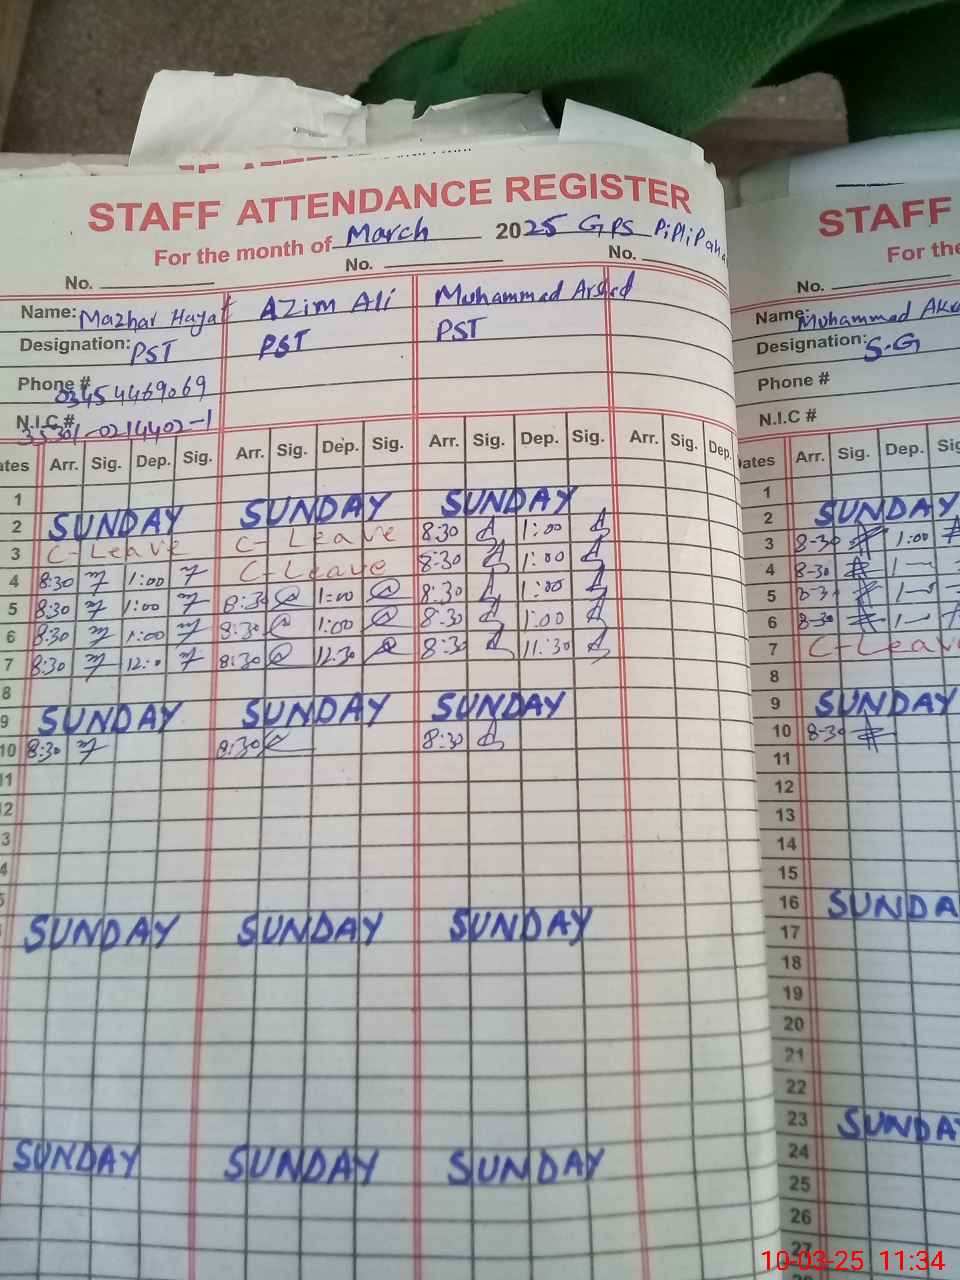 STAFF ATTENDANCE REGISTER
For the month of March 2025 GPS PiPliPaha
No. No. No.
Name: Mazhar Hayat Azim Ali Muhammad Arshd
Designation: PST PST PST
Phone # 03454469069
N.I.C # 35301-0214402-1
ates Arr. Sig. Dep. Sig. Arr. Sig. Dep. Sig. Arr. Sig. Dep. Sig. Arr. Sig. Dep.
1
2 SUNDAY SUNDAY SUNDAY
3 C-Leave C-Leave 8:30 1:00
4 8:30 1:00 C-Leave 8:30 1:00
5 8:30 1:00 8:30 1:00 8:30 1:00
6 8:30 1:00 8:30 1:00 8:30 1:00
7 8:30 12:0 8:30 12.30 8:30 11:30
8
9 SUNDAY SUNDAY SUNDAY
10 8:30 8:30 8:30
11
2
3
4
5
SUNDAY SUNDAY SUNDAY
SUNDAY SUNDAY SUNDAY
STAFF
For the
No.
Name: Muhammad Ak
Designation: S.G
Phone #
N.I.C #
ates Arr. Sig. Dep. Sig
1
2 SUNDAY
3 8-30 1:00
4 8-30 1-
5 8-31 1-
6 8-30 1-
7 C-Leave
8
9 SUNDAY
10 8-30
11
12
13
14
15
16 SUNDA
17
18
19
20
21
22
23 SUNDA
24
25
26
27
10-03-25 11:34